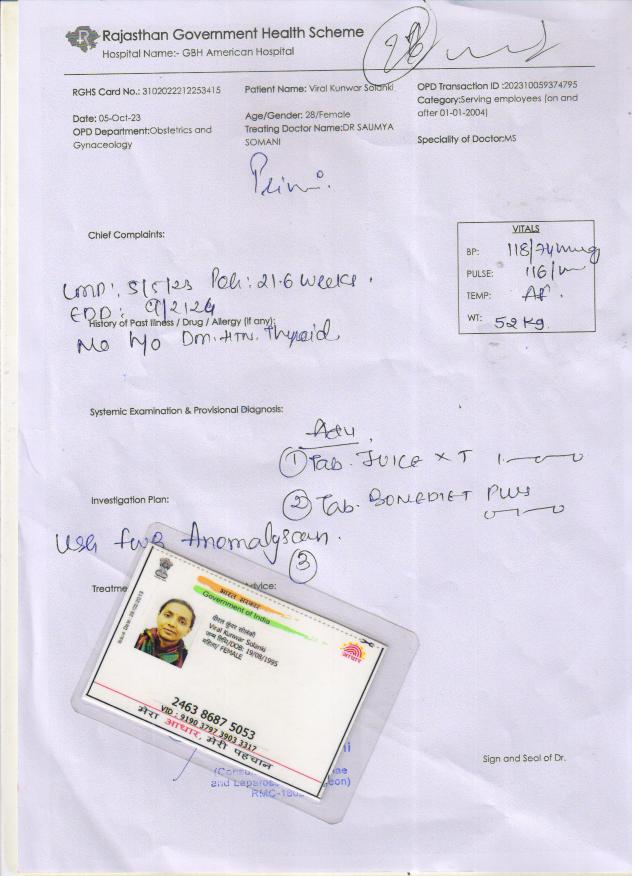 Rajasthan Government Health Scheme
Hospital Name:- GBH American Hospital
RGHS Card No.: 3102022212253415
Patient Name: Viral Kunwar Solanki
OPD Transaction ID :202310059374795
Category:Serving employees (on and
after 01-01-2004)
Date: 05-Oct-23
Age/Gender: 28/Female
OPD Department:Obstetrics and
Gynaceology
Treating Doctor Name:DR SAUMYA
SOMANI
Speciality of Doctor:MS
Primi.
Chief Complaints:
VITALS
BP: 118/74mmHg
PULSE: 116/m
TEMP: AF.
WT: 52 Kg.
LMP: 5/5/23 POG: 21.6 weeks.
EDD: 9/2/24
History of Past Illness / Drug / Allergy (if any):
No h/o Dm. HTN. Thyroid
Systemic Examination & Provisional Diagnosis:
Adv.
① Tab. JUICE XT 1
Investigation Plan:
② Tab. BONEDIET PLUS
USG Anomaly scan.
③
Treatme dvice:
भारत सरकार
Government of India
Issue Date: 28/02/2013
वीरल कुंवर सोलंकी
Viral Kunwar Solanki
जन्म तिथि/DOB: 19/08/1995
महिला/ FEMALE
आधार
2463 8687 5053
VID : 9190 3797 3903 3317
मेरा आधार, मेरी पहचान
Sign and Seal of Dr.